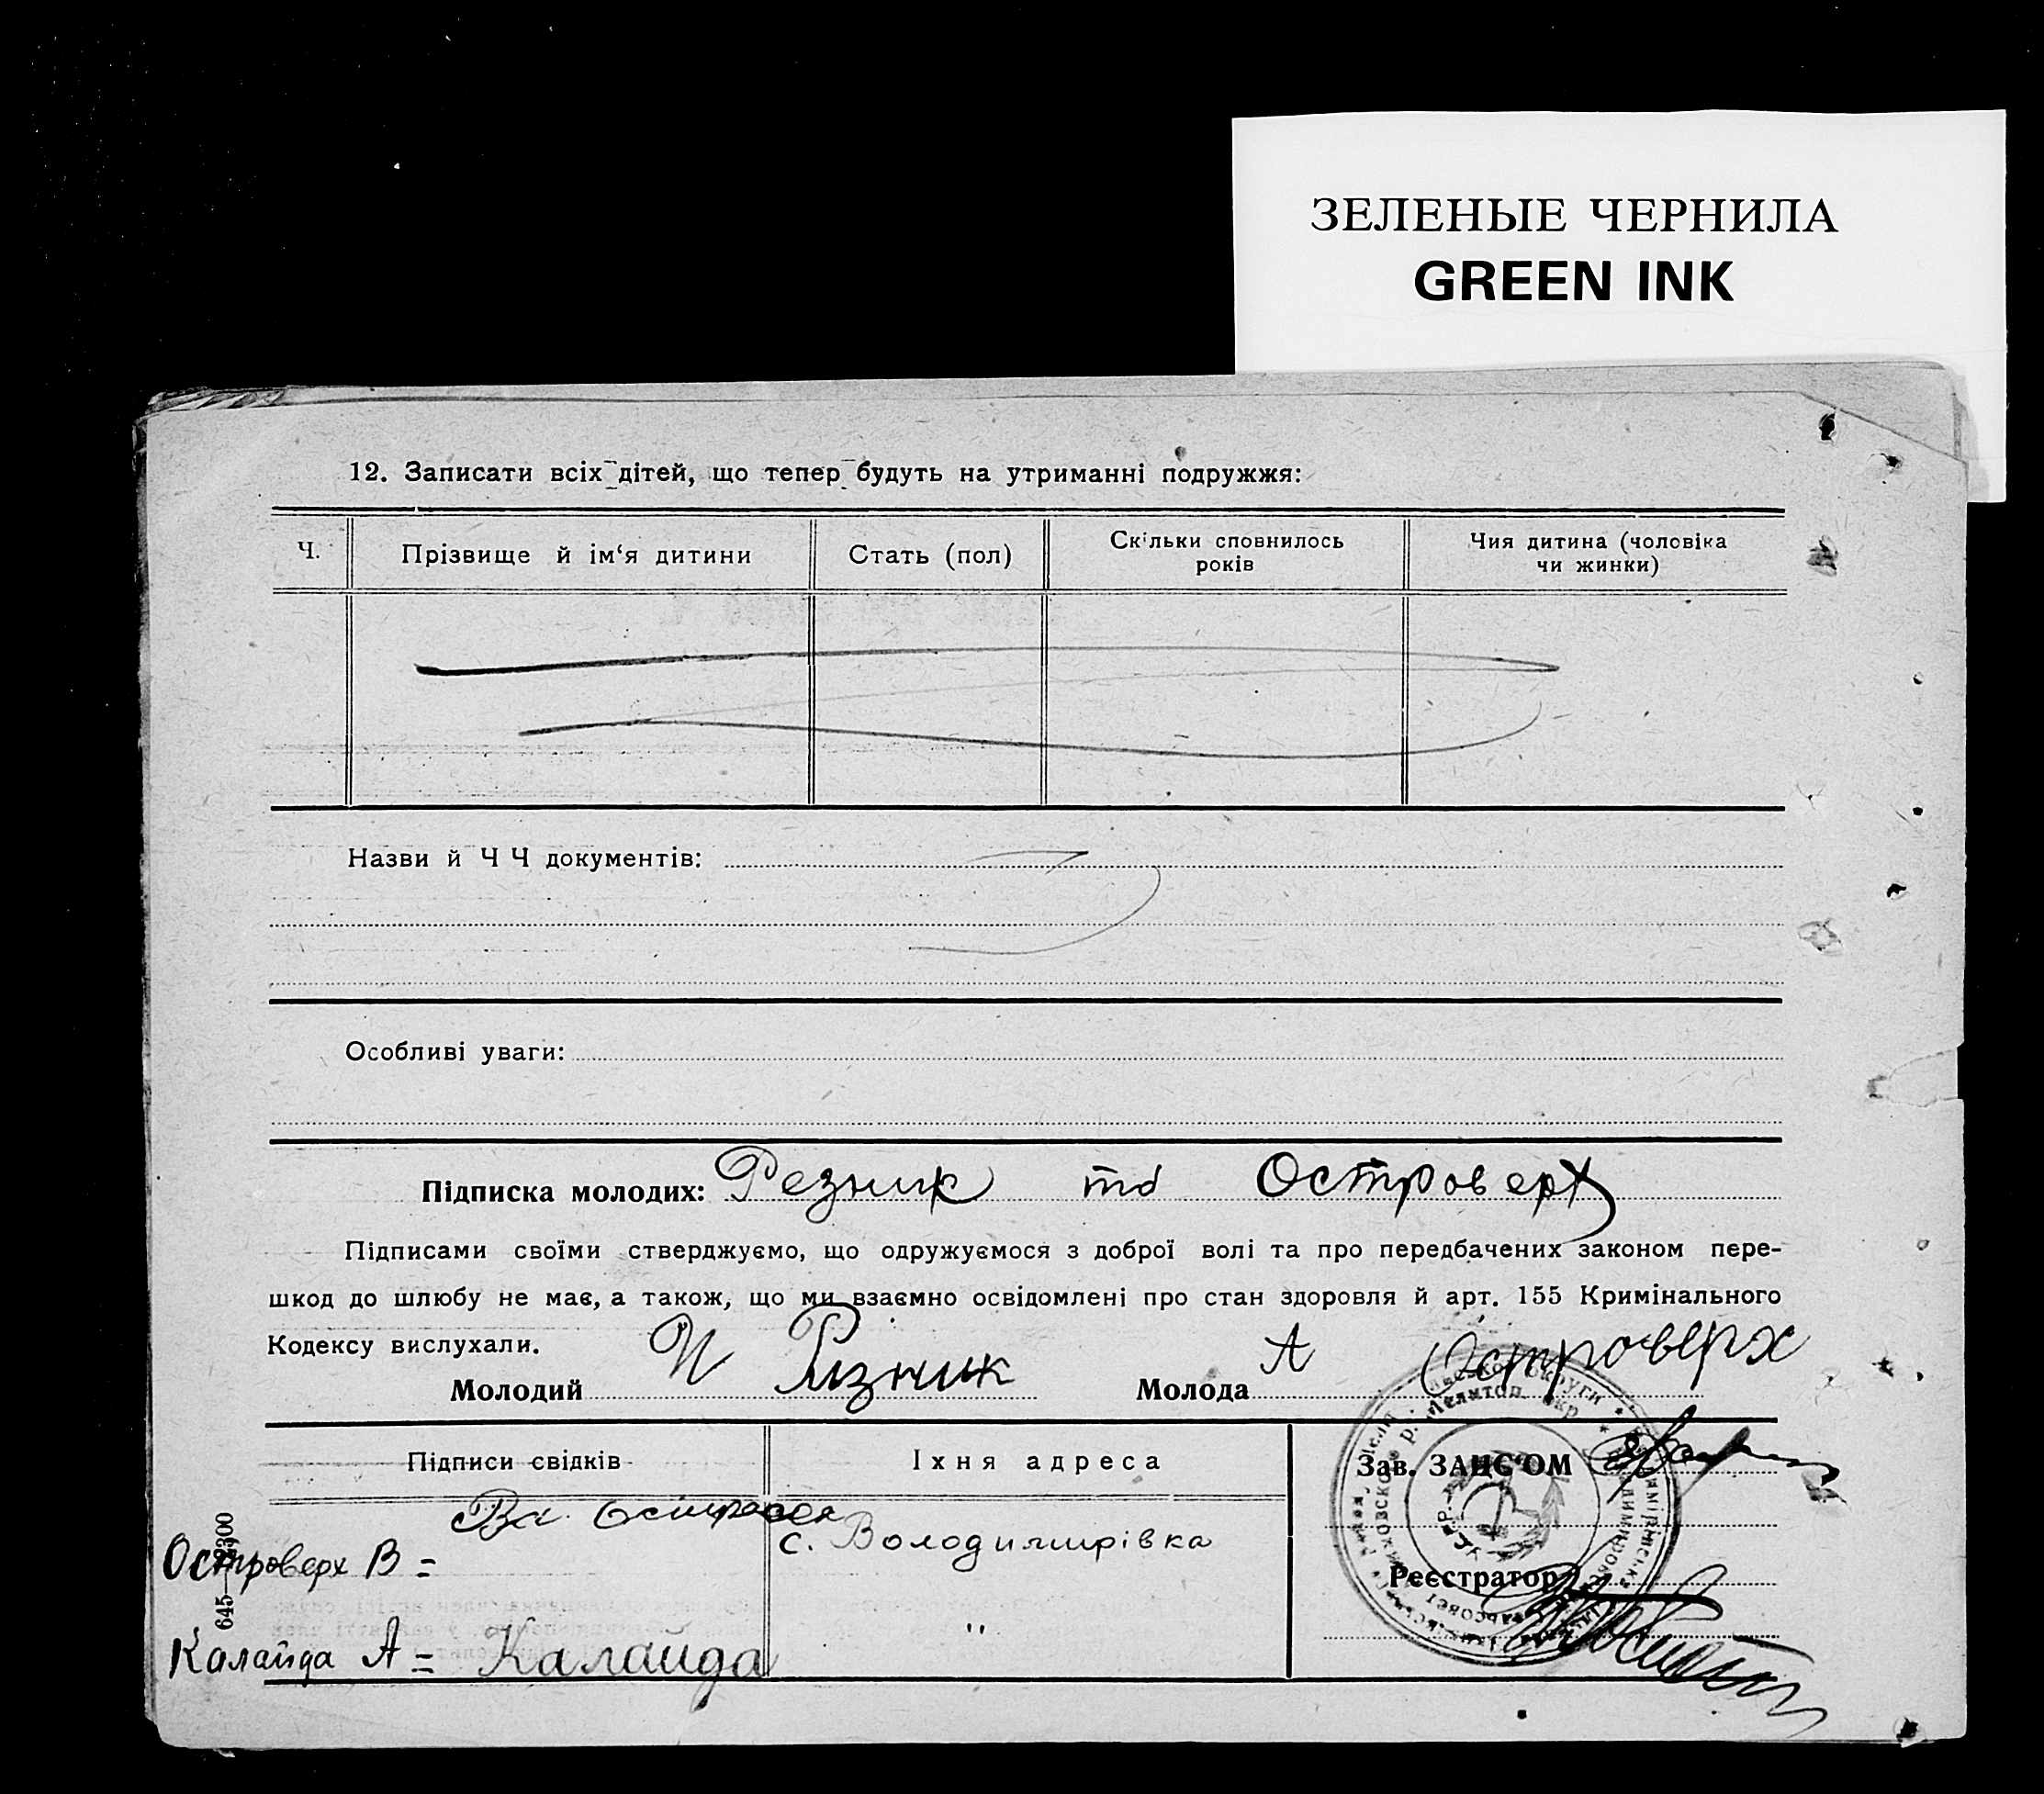 ЗЕЛЕНЫЕ ЧЕРНИЛА
GREEN INK
12. Записати всіх дітей, що тепер будуть на утриманні подружжя:
Ч. Прізвище й ім‘я дитини Стать (пол) Скільки сповнилось років Чия дитина (чоловіка чи жинки)
Назви й Ч Ч документів:
Особливі уваги:
Підписка молодих: Резник та Островерх
Підписами своїми стверджуємо, що одружуємося з доброї волі та про передбачених законом пере-
шкод до шлюбу не має, а також, що ми взаємно освідомлені про стан здоровля й арт. 155 Кримінального
Кодексу вислухали.
Молодий И Різник Молода А Островерх
Підписи свідків Їхня адреса Зав. ЗАЦС‘ОМ
Островерх В = с. Володимирівка
Реєстратор
Калайда А = Калаида "
645—2300